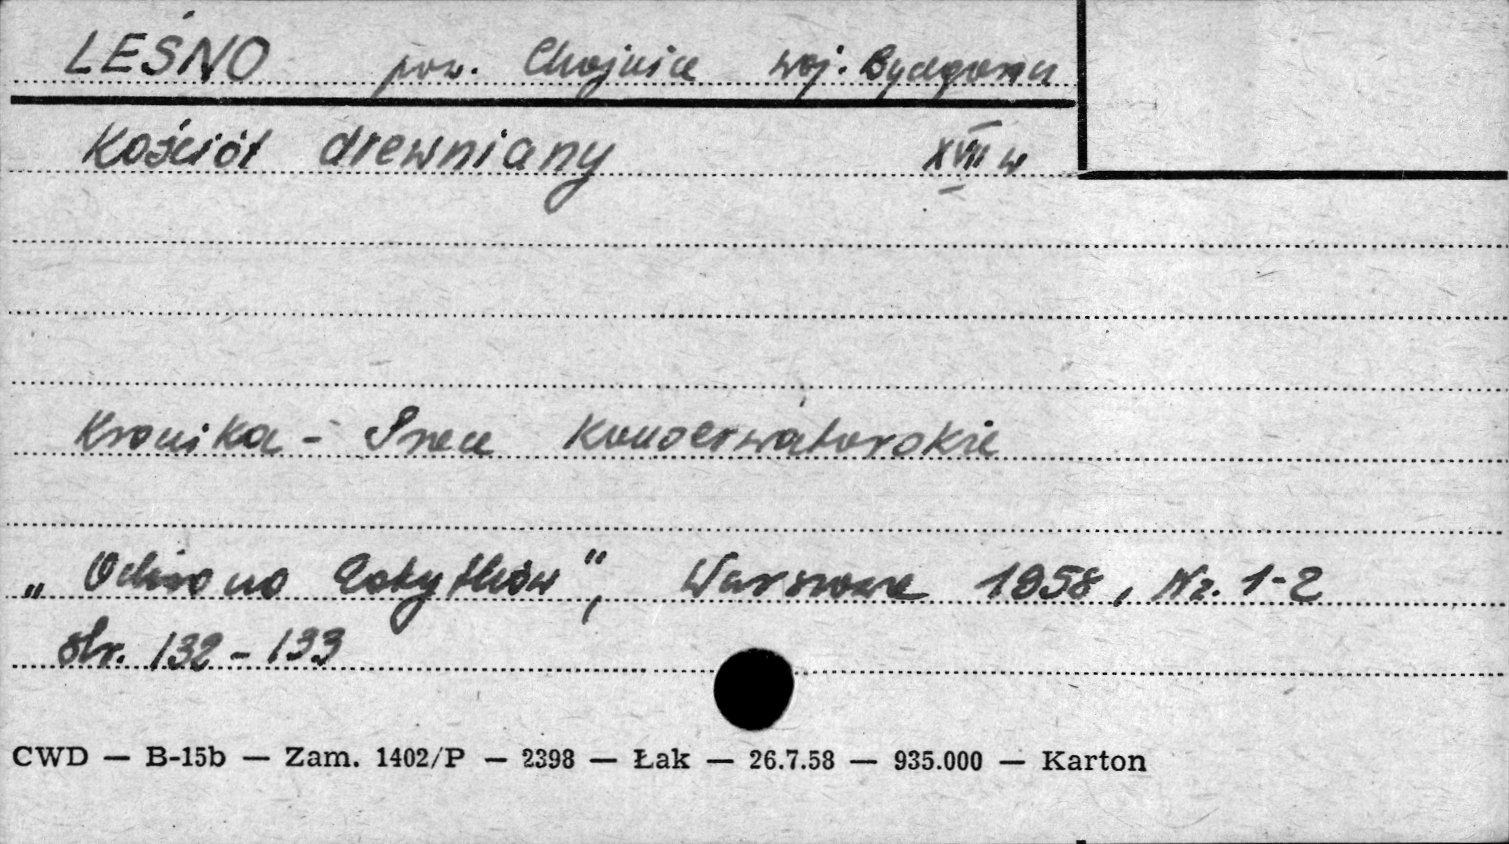 LEŚNO pow. Chojnice woj. Bydgoszcz
Kościół drewniany XVII w
Kronika - Prace Konserwatorskie
„Ochrona Zabytków", Warszawa 1958, Nr. 1-2
str. 132 - 133
CWD — B-15b — Zam. 1402/P — 2398 — Łak — 26.7.58 — 935.000 — Karton